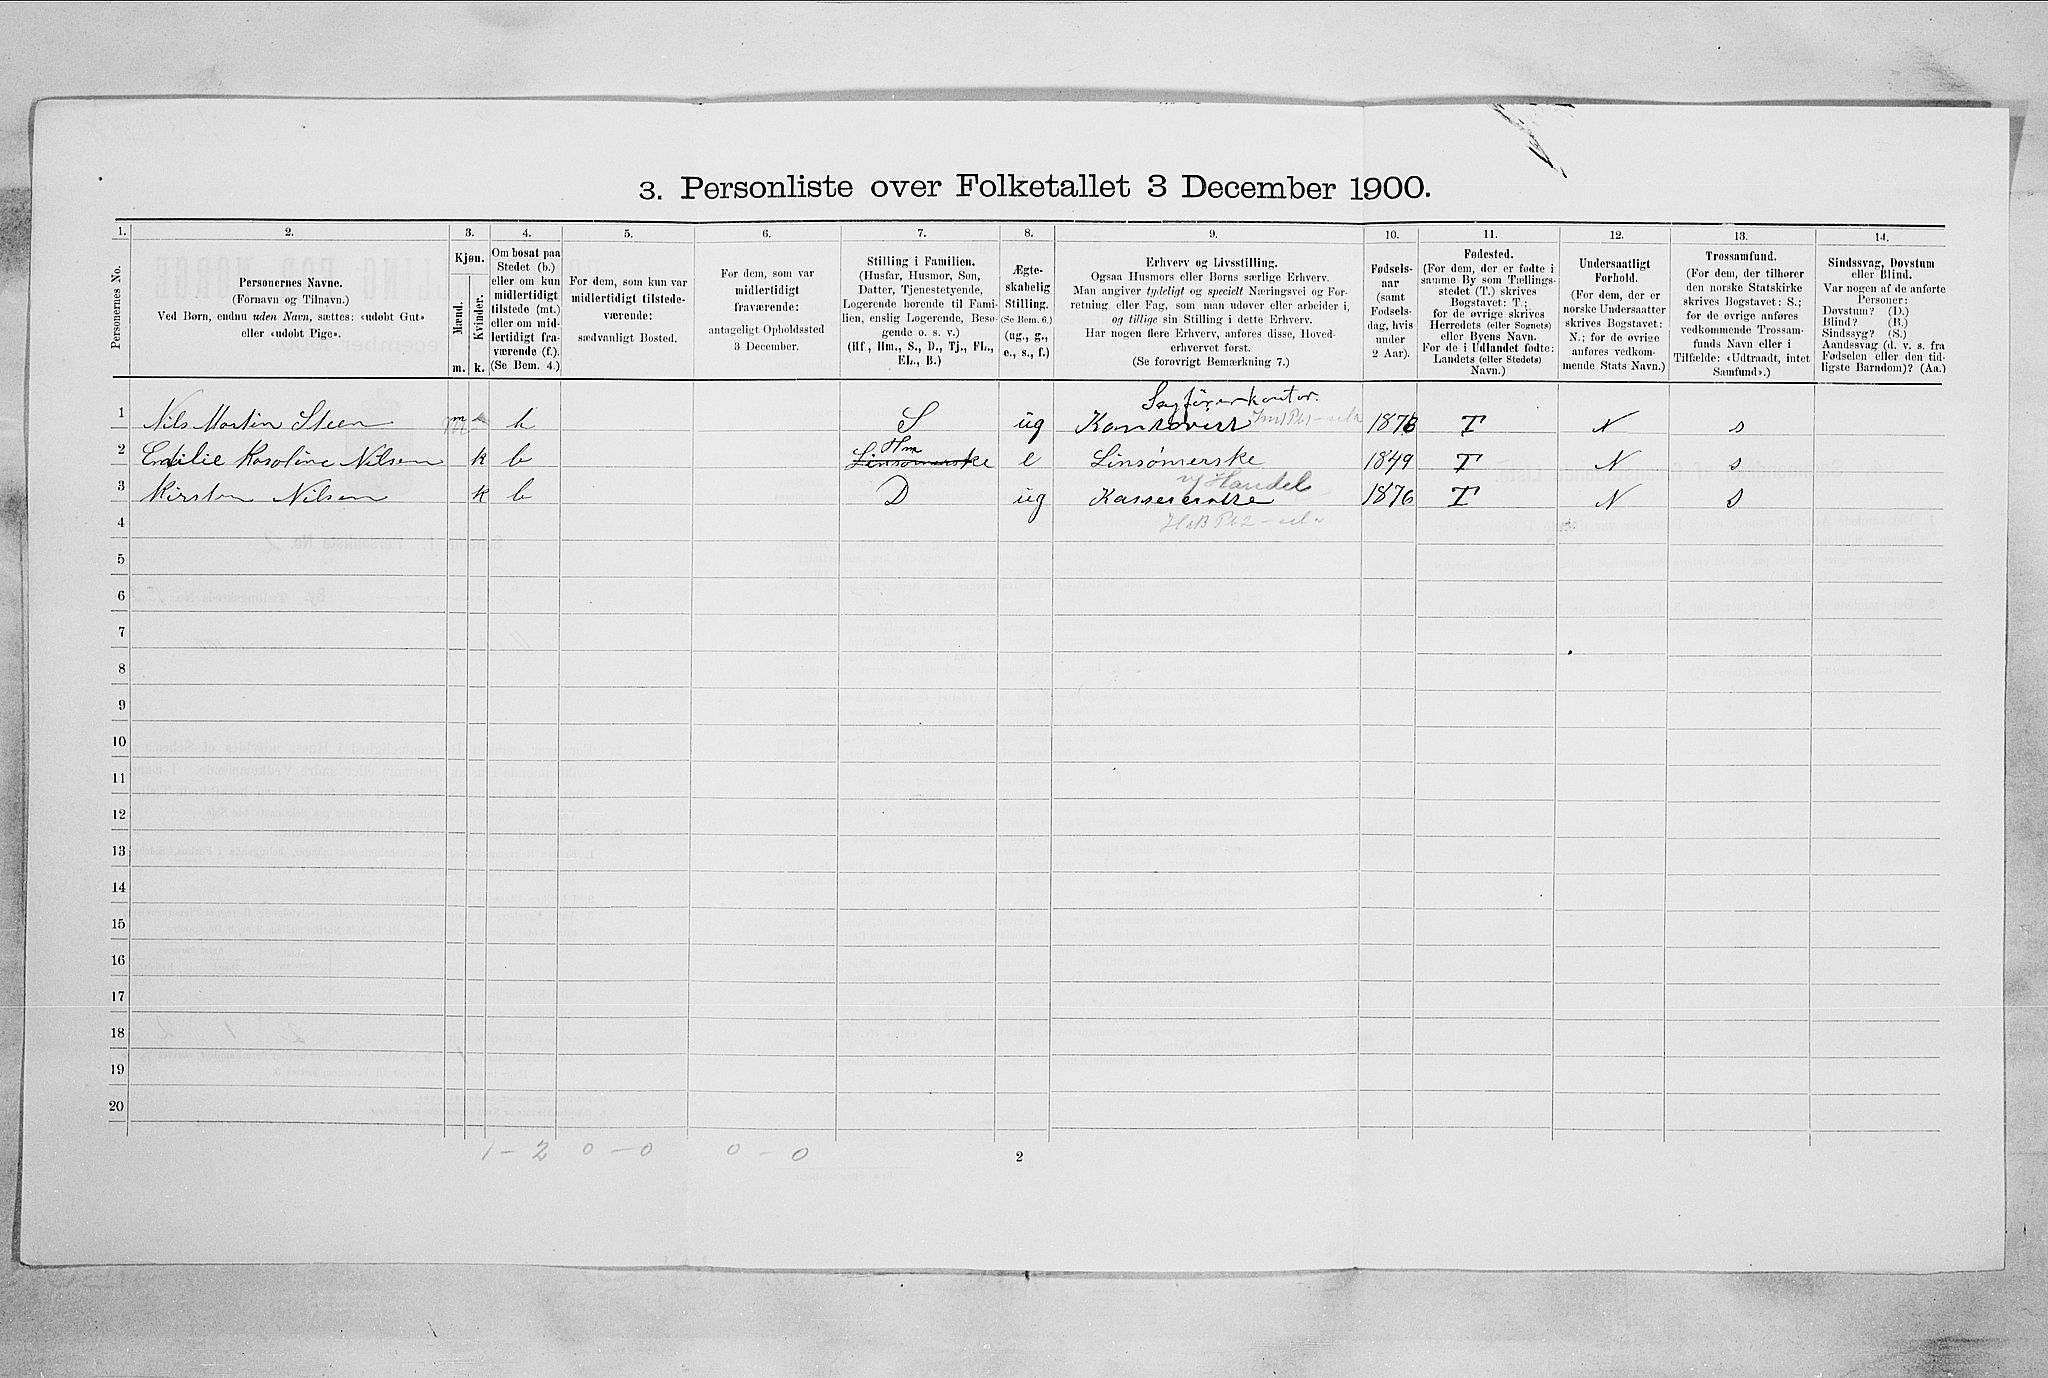 3. Personliste over Folketallet 3 December 1900.
1. 2. 3. 4. 5. 6. 7. 8. 9. 10. 11. 12. 13. 14.
Personernes No.
Personernes Navne.
(Fornavn og Tilnavn.)
Ved Børn, endnu uden Navn, sættes: «udøbt Gut»
eller «udøbt Pige».
Kjøn.
Mænd.
Kvinder.
m. k.
Om bosat paa
Stedet (b.)
eller om kun
midlertidigt
tilstede (mt.)
eller om mid-
lertidigt fra-
værende (f.).
(Se Bem. 4.)
For dem, som kun var
midlertidigt tilstede-
værende:
sædvanligt Bosted.
For dem, som var
midlertidigt
fraværende:
antageligt Opholdssted
3 December.
Stilling i Familien.
(Husfar, Husmor, Søn,
Datter, Tjenestetyende,
Logerende hørende til Fami-
lien, enslig Logerende, Besø-
gende o. s. v.)
(Hf., Hm., S., D., Tj., FL.,
EL., B.)
Ægte-
skabelig
Stilling.
(Se Bem. 6.)
(ug., g.,
e., s., f.)
Erhverv og Livsstilling.
Ogsaa Husmors eller Børns særlige Erhverv.
Man angiver tydeligt og specielt Næringsvei og For-
retning eller Fag, som man udøver eller arbeider i,
og tillige sin Stilling i dette Erhverv.
Har nogen flere Erhverv, anføres disse, Hoved-
erhvervet først.
(Se forøvrigt Bemærkning 7.)
Fødsels-
aar
(samt
Fødsels-
dag, hvis
under
2 Aar).
Fødested.
(For dem, der er fødte i
samme By som Tællings-
stedet (T.) skrives
Bogstavet: T.;
for de øvrige skrives
Herredets (eller Sognets)
eller Byens Navn.
For de i Udlandet fødte:
Landets (eller Stedets)
Navn.)
Undersaatligt
Forhold.
(For dem, der er
norske Undersaatter
skrives Bogstavet:
N.; for de øvrige
anføres vedkom-
mende Stats Navn.)
Trossamfund.
(For dem, der tilhører
den norske Statskirke
skrives Bogstavet: S.;
for de øvrige anføres
vedkommende Trossam-
funds Navn eller i
Tilfælde: «Udtraadt, intet
Samfund».)
Sindssvag, Døvstum
eller Blind.
Var nogen af de anførte
Personer:
Døvstum? (D.)
Blind? (B.)
Sindssyg? (S.)
Aandssvag (d. v. s. fra
Fødselen eller den tid-
ligste Barndom)? (Aa.)
Sagførerkontor.
1 Nils Martin Steen m b S ug Kontorist 1878 T N s
Hm
2 Emilie Rosoline Nilsen k b Linsømerske e Linsømerske 1849 T N s
v/ Handel
3 Kirsten Nilsen k b D ug Kassererske 1876 T N s
4
5
6
7
8
9
10
11
12
13
14
15
16
17
18
19
20
1 - 2 0 - 0 0 - 0
2